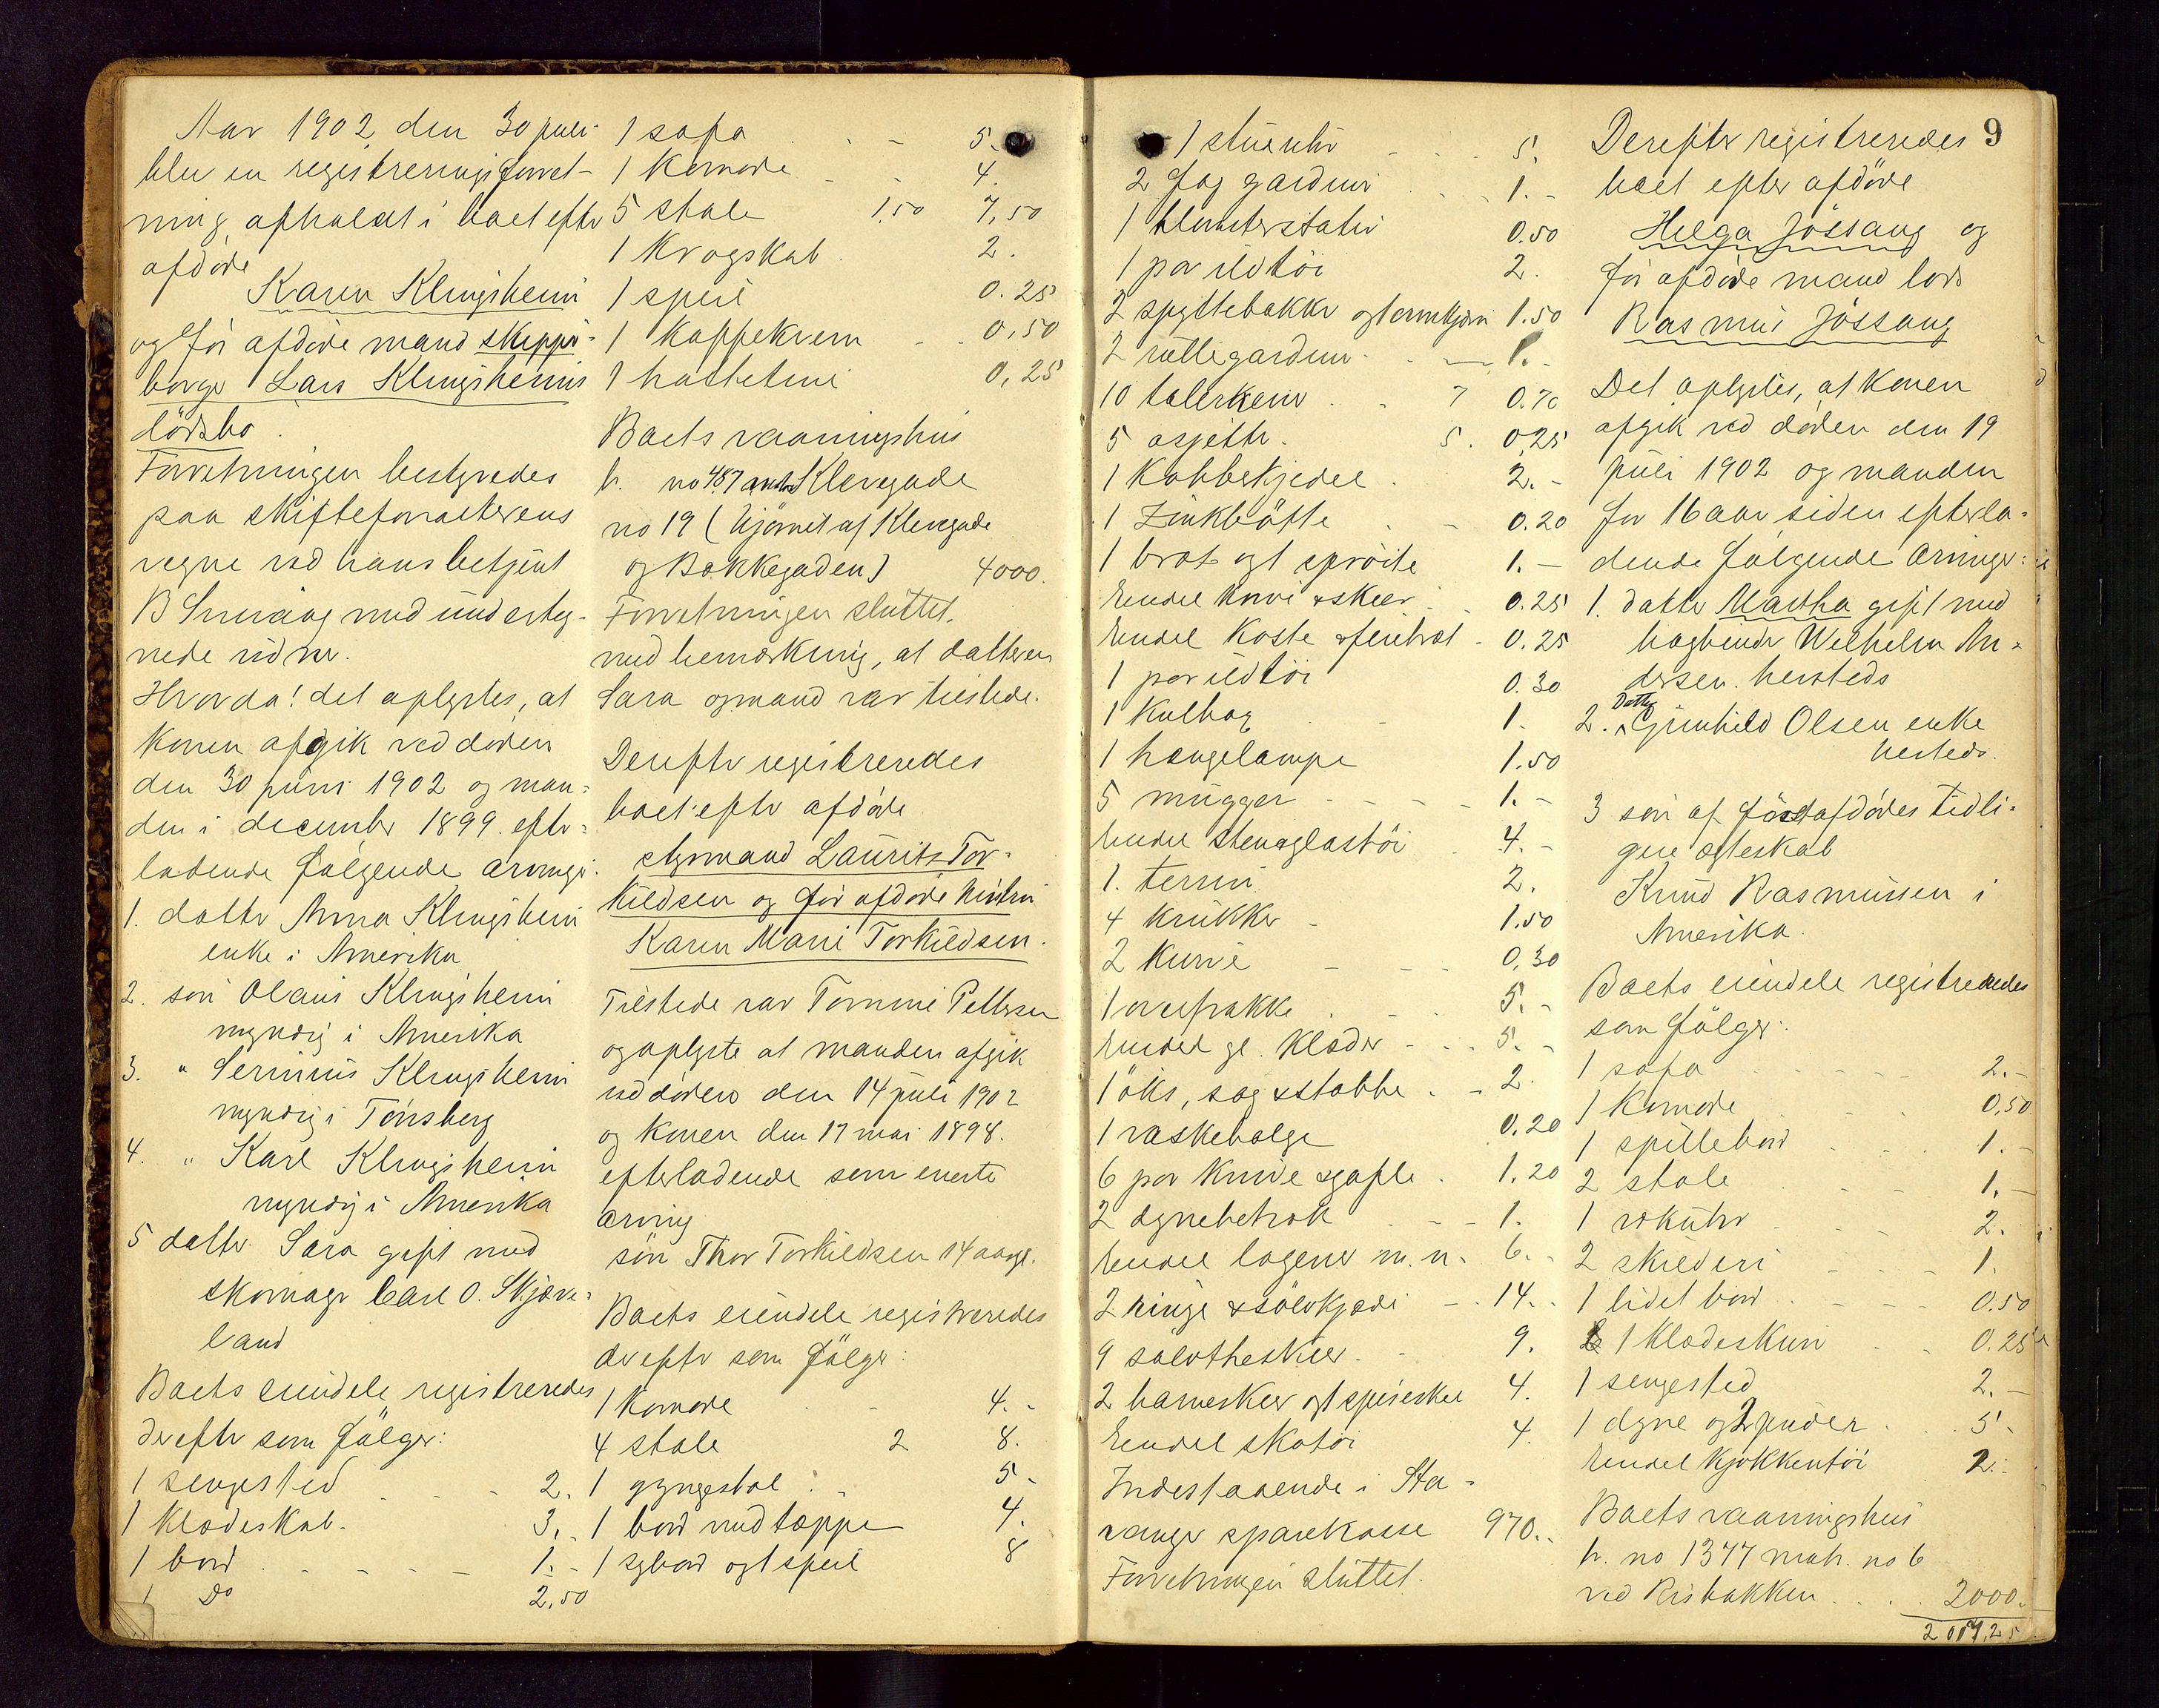 Aar 1902 den 30 juli
blev en registreringsforret-
ning afholdt i boet efter
afdøde
Karen Klingsheim
og før afdøde mand skipps-
borger Lars Klingsheims
dødsbo.
Forretningen bestyredes
paa skifteforvalterens
vegne ved hans betjent
B Smaaog med underteg-
nede vidner.
Hvorda! det oplystes, at
konen afgik ved døden
den 30 juni 1902 og man-
den i december 1899. efter-
ladende følgende arvinger.
1. datter Anna Klingsheim
enke i Amerika
2. søn Olaus Klingsheim
myndig i Amerika
3. " Serinius Klingsheim
myndig i Tønsberg
4. " Karl Klingsheim
myndig i Amerika
5 datter Sara gift med
skomager Carl O. Skjæve-
land
Boets eiendele registreredes
derefter som følger:
1 sengested - - - 2.
1 klædeskab - 3.-
1 bord - - - - 1.-
1 Do 2,50
1 sofa - - 5.
1 komode - - 4.
5 stole 1,50 7,50
1 krogskab 2.
1 speil 0.25
1 kaffekvern - . 0,50
1 hatteteine 0,25
Boets vaaningshus
br. no 487 matr Klevegade
no 19 (hjørnet af Klevegade
og Bakkegaden) 4000.
Forretningen sluttet.
med bemærkning, at datteren
Sara ogmand var tilstede.
Derefter registreredes
boet efter afdøde
styrmand Laurits Tor-
kildsen og før afdøde hustru
Karen Marie Torkildsen.
Tilstede var Tomine Pettersen
og oplyste at manden afgik
ved døden den 14 juli 1902
og konen den 17 mai 1898.
efterladende som eneste
arving
søn Thor Torkildsen 14 aar gl.
Boets eiendele registreredes
derefter som følger:
1 komode - 4.-
4 stole 2 8.
1 gyngestol . . 5-
1 bord med tæppe 4.
1 sybord og 1 speil 8
1 stueuhr - - - 5.
2 fag gardiner . . 1.-
1 blomsterstativ 0.50
1 par ildtøi 2.
2 spyttebakker og termkjørn 1.50
2 rullegardiner . - 1.-
10 talerkener . . 7 0.70
5 asjetter. 5. 0,25
1 kobberkjedel . 2.-
1 Zinkbøtte . - 0.20
1 brøt og 1 sprøite 1.-
Endel knive & skeer . . 0.25
Endel koste & feiebræt - 0.25
1 par ildtøi 0.30
1 kulbox . - 1.
1 hængelampe 1.50
5 mugger - - - - 1.-
Endel sten&glastøi . 4.-
1. terrin 2.
4 krukker - 1.50
2 kurve - - - 0,30
1 overfrakke . - . 5.-
Endel gl. klæder - . . 5.-
1 øks, sag & stabbe . - 2.
1 vaskebalge 0.20
6 par knive & gafle . 1.20
2 dynebetræk . - - 1.
Endel lagener m.m. 6.-
2 ringe & sølvkjæde - . 14. .
9 sølvtheskeer . - 9.
2 barneskeer og 1 spiseskee 4.
Endel skotøi 4.
Indestaaende i Sta-
vanger sparekasse 970..
Forretningen sluttet.
9
Derefter registreredes
boet efter afdøde
Helga Jøssang og
før afdøde mand lods
Rasmus Jøssang
Det oplystes, at konen
afgik ved døden den 19
juli 1902 og manden
for 16 aar siden efterla-
dende følgende arvinger:
1. datter Martha gift med
bogbinder Wilhelm An-
dersen. hersteds
Datter
2. Gunhild Olsen enke
hersteds.
3 søn af førstafdødes tidli-
gere ægteskab
Knud Rasmussen i
Amerika.
Boets eiendele registreredes
som følger:
1 sofa - - - - - 2.-
1 komode . . - . 0,50
1 spillebord . . . . 1.-
2 stole . - - - 1.-
1 vækuhr - - - - 2.
2 skilderi - - - 1.
1 lidet bord - - - - 0.50
1 klædeskrin - . 0.25
1 sengested 2.-
1 dyne og 2 puder . . . 5-
Endel kjøkkentøi 2.-
Boets vaaningshus
br. no 1377 matr. no 6
ved Risbakken . . . . 2000.
2017,25